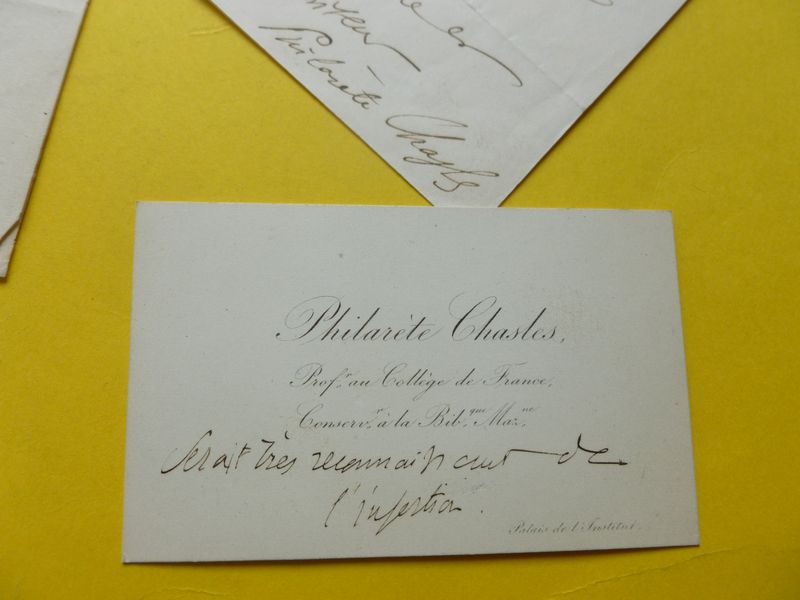 Philarète Chasles
Philarète Chasles,
Prof.r au Collège de France,
Conserv.r à la Bib.que Maz.ne
Serait très reconnaissant de
l'insertion.
Palais de l'Institut.